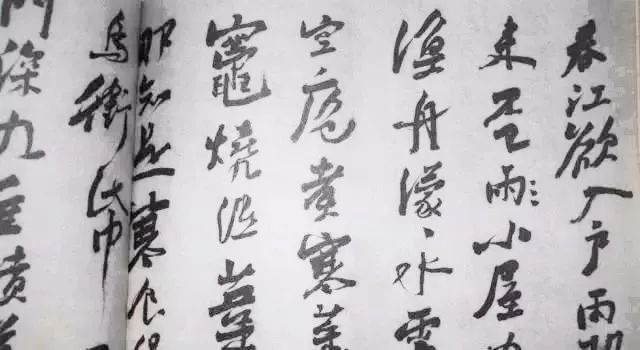 春江欲入戶雨
來不已雨小屋
漁舟濛々水雲
空庖煮寒菜
竈燒濕葦
那知是寒食
烏銜帋
門深九重墳